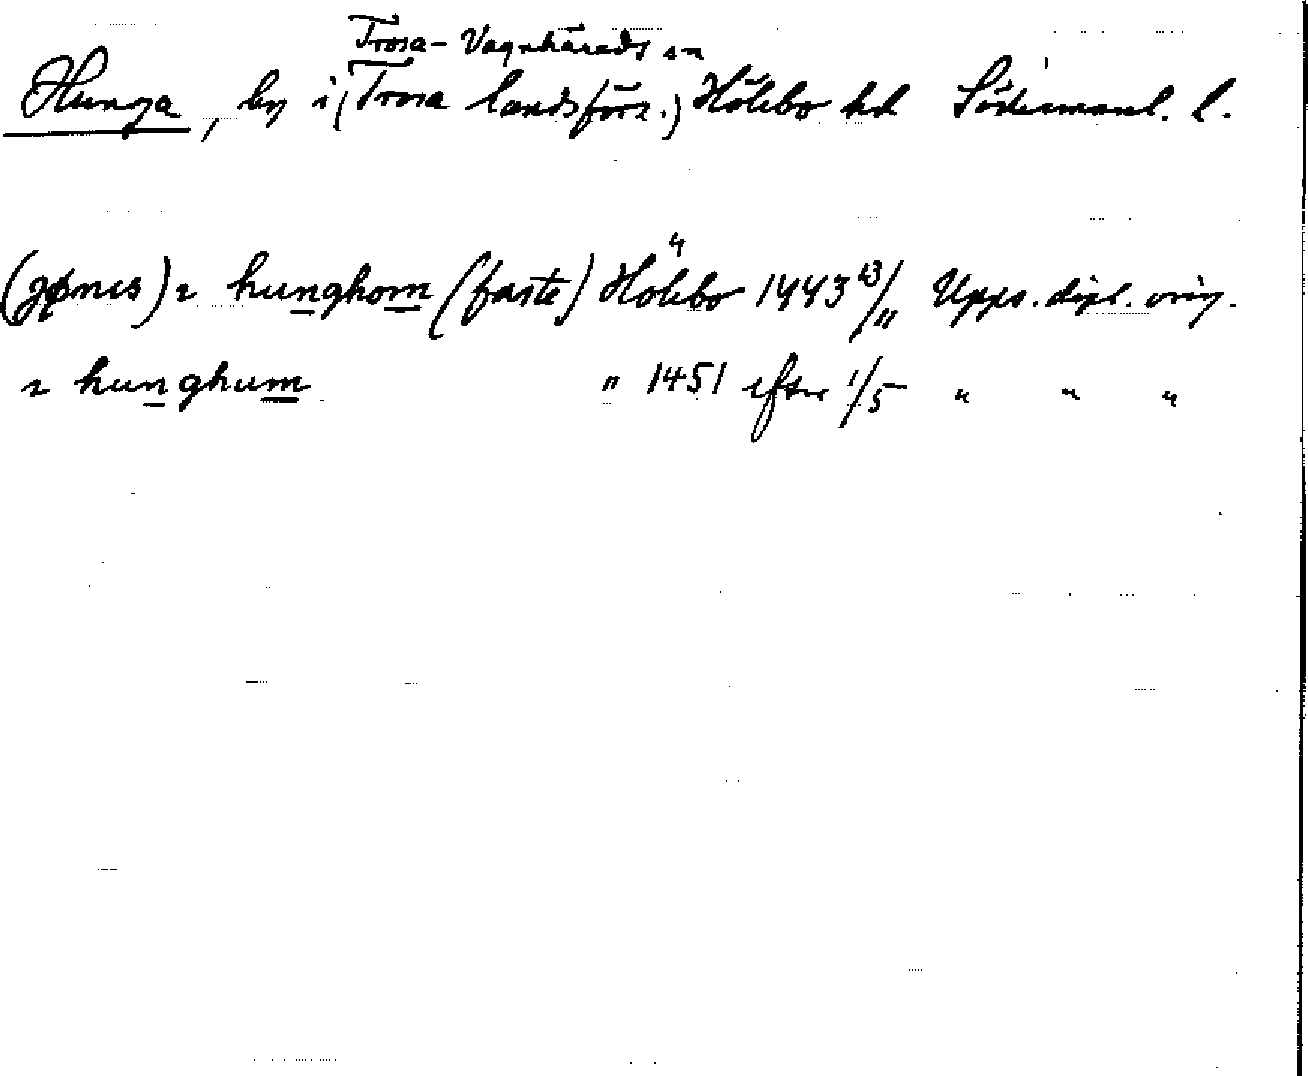 Trosa-Vagnhärads sn
Hunga, by i (Trosa landsförs.) Hölebo hd Södermanl. l.
(gønes) i hunghom (faste) Hölebo 1443 23/11 Upps. dipl. orig.
i hunghum " 1451 efter 1/5 " " "